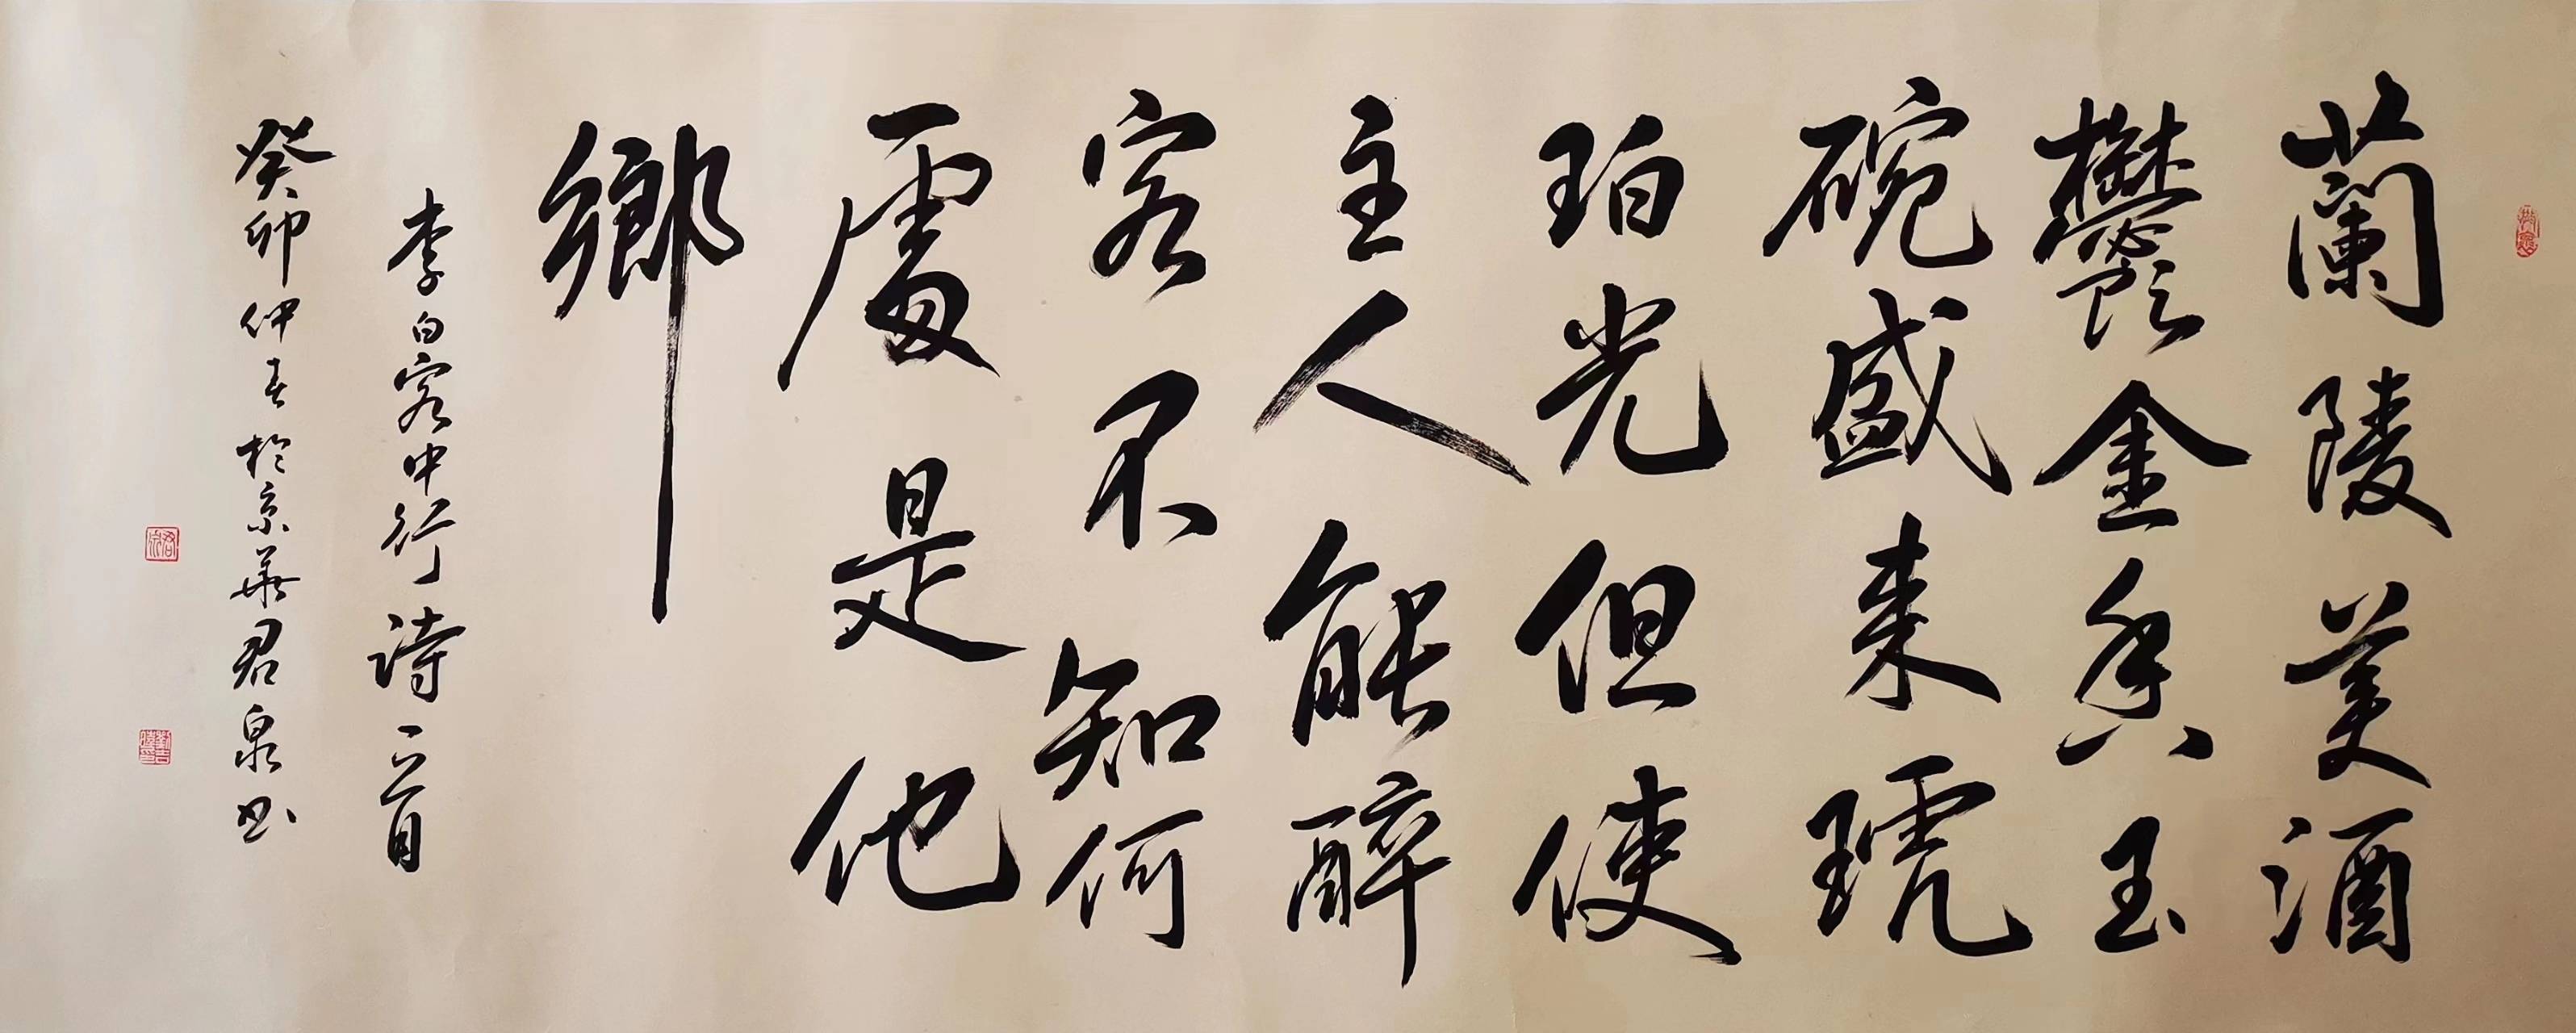 蘭陵美酒
鬱金香玉
碗盛来琥
珀光但使
主人能醉
客不知何
處是他
鄉
李白客中行詩一首
癸卯仲春於京華君泉书